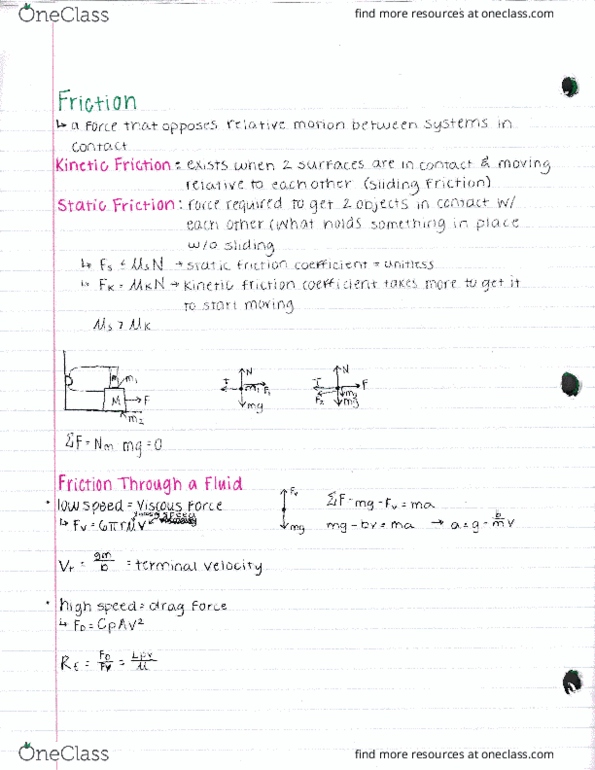 OneClass find more resources at oneclass.com
Friction
↳ a force that opposes relative motion between systems in
contact
Kinetic Friction: exists when 2 surfaces are in contact & moving
relative to each other (sliding friction)
Static Friction: force required to get 2 objects in contact w/
each other (what holds something in place
w/o sliding
↳ Fs ≤ μsN → static friction coefficient = unitless
↳ Fk = μkN → kinetic friction coefficient takes more to get it
to start moving
μs > μk
N N
m1 T m1 F1 T F
M F mg F2 mg
m2 mg
ΣF = Nm mg = 0
Friction Through a Fluid
• low speed = viscous force Fv ΣF = mg - Fv = ma
↳ Fv = 6πrμv mg mg - bv = ma → a = g - b/m v
Vt = gm/b = terminal velocity
• high speed = drag force
↳ FD = CρAv²
Rε = FD/Fv = Lρv/μ
OneClass find more resources at oneclass.com